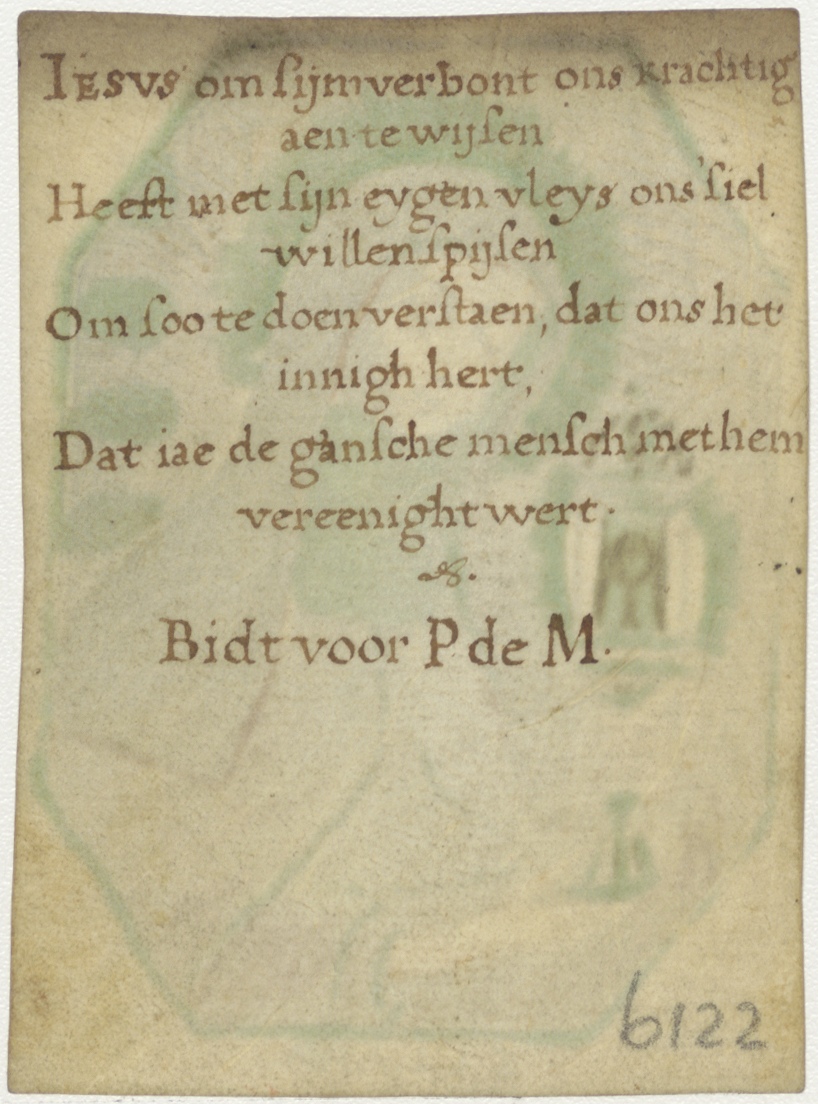 IESVS om sijm verbont ons krachtig
aen te wijsen
Heeft met sijn eygen vleys ons siel
willen spijsen
Om soo te doen verstaen, dat ons het
innigh hert,
Dat iae de gansche mensch met hem
vereenight wert.
Bidt voor P de M.
6122